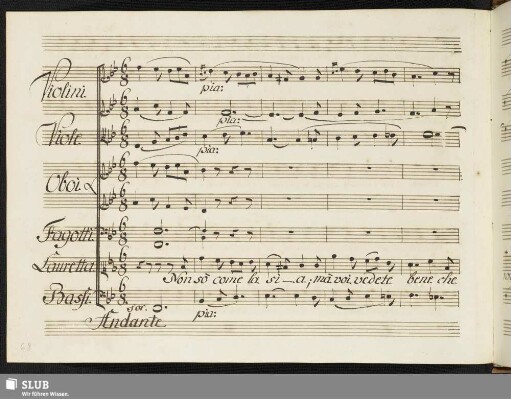 Violini.
pia:
pia:
Viole.
pia:
Oboi.
Fagotti.
Lauretta
Non sò come la si_a; mà voi vedete bene che
Bassi.
for. pia:
Andante
SLUB
Wir führen Wissen.